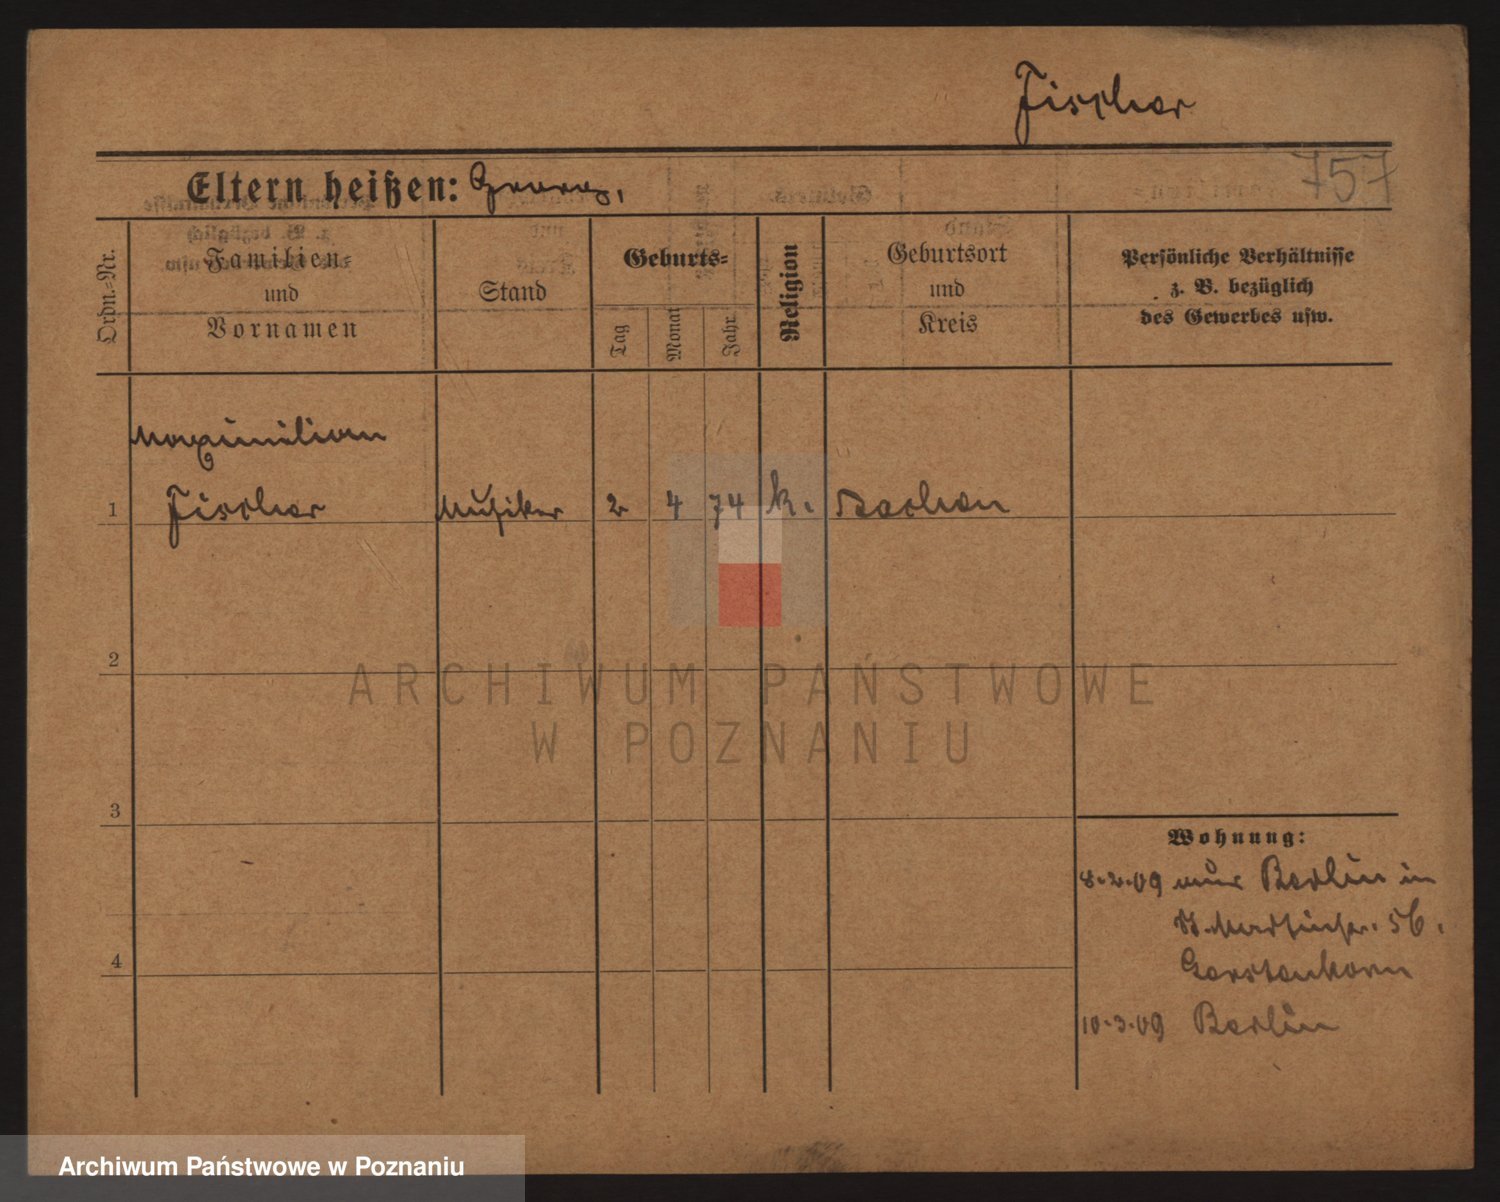 Fischer
757
Eltern heißen: Georg,
Ordn.-Nr.
Familien-
und
Vornamen
Stand
Geburts-
Tag
Monat
Jahr
Religion
Geburtsort
und
Kreis
Persönliche Verhältnisse
z. B. bezüglich
des Gewerbes usw.
Maximilian
1 Fischer Musiker 2 4 74 k. Bochen
2
3
4
Wohnung:
8.2.09 Berlin in
St. Martinstr. 56.
Gerstenkorn
10.3.09 Berlin
ARCHIWUM PAŃSTWOWE
W POZNANIU
Archiwum Państwowe w Poznaniu